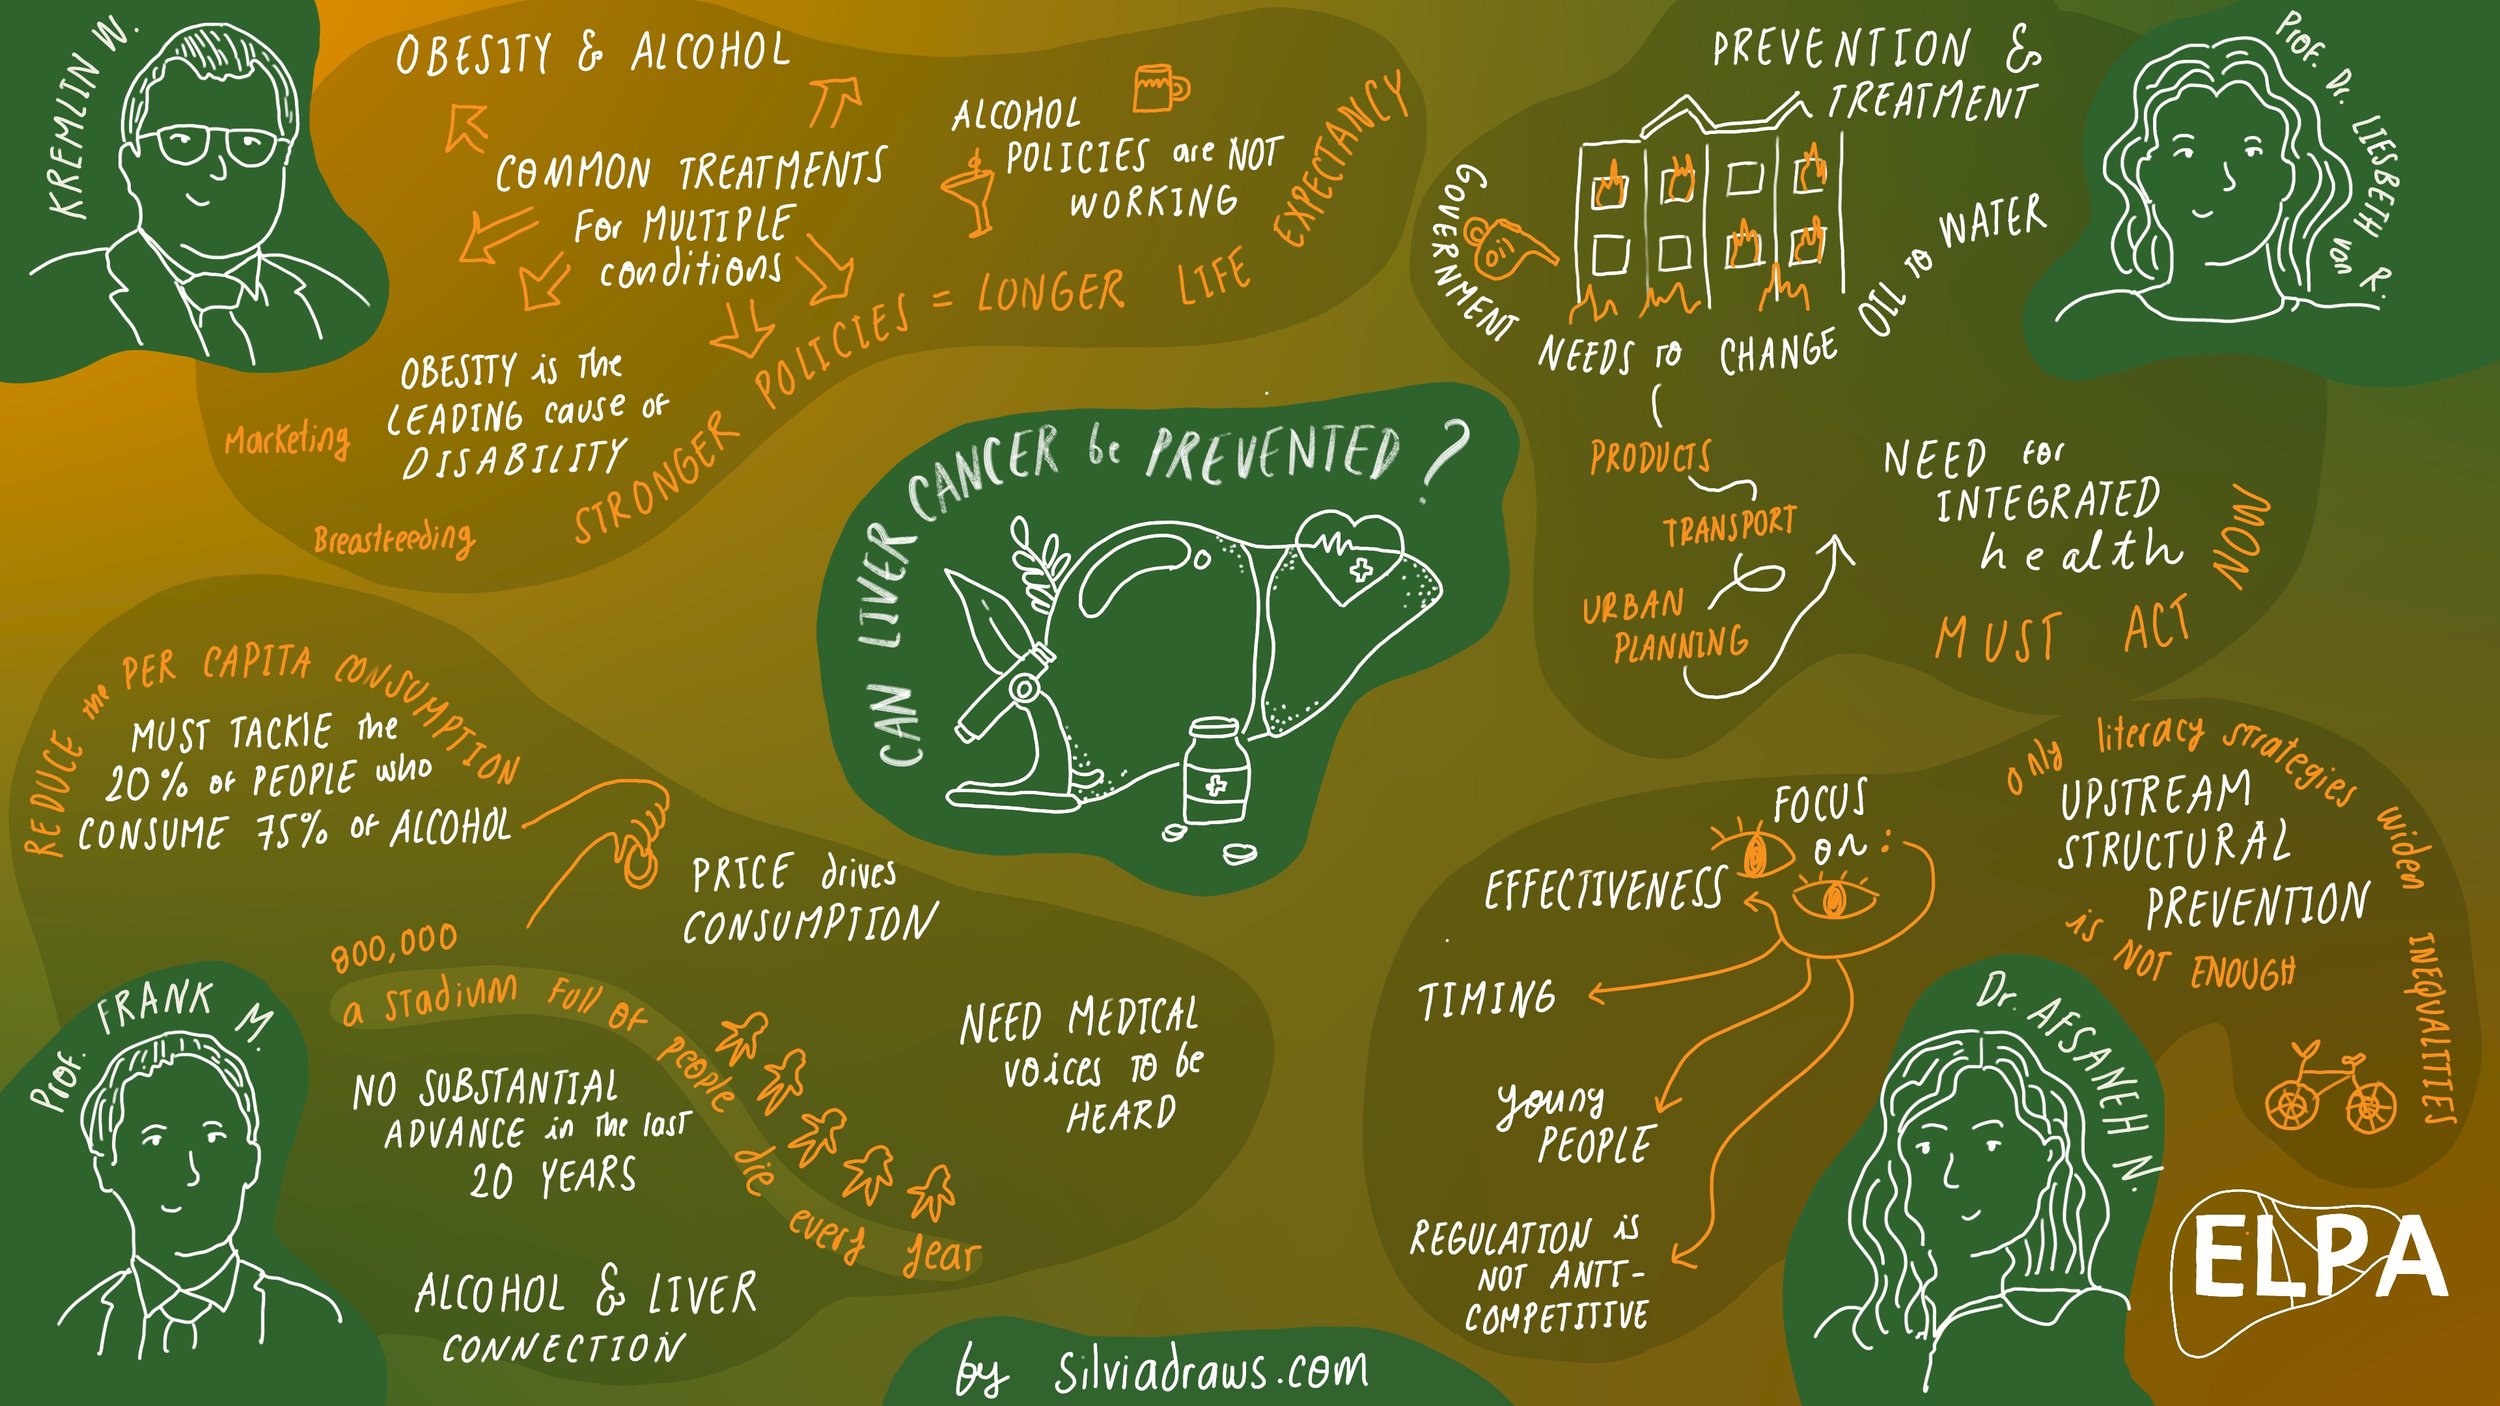 KREMLIN W.
OBESITY & ALCOHOL
COMMON TREATMENTS
For MULTIPLE
conditions
ALCOHOL
POLICIES are NOT
WORKING
OBESITY is the
LEADING cause of
DISABILITY
Marketing
Breastfeeding
STRONGER POLICIES = LONGER LIFE EXPECTANCY
PREVENTION &
TREATMENT
Prof. Dr. LIESBETH van R.
GOVERNMENT
Oil
OIL TO WATER
NEEDS TO CHANGE
PRODUCTS
TRANSPORT
URBAN
PLANNING
NEED for
INTEGRATED
health
MUST ACT NOW
CAN LIVER CANCER be PREVENTED?
REDUCE the PER CAPITA CONSUMPTION
MUST TACKlE the
20% of PEOPLE who
CONSUME 75% of ALCOHOL
PRICE drives
CONSUMPTION
800,000
a stadium full of people die every year
Prof. FRANK M.
NO SUBSTANTIAL
ADVANCE in the last
20 YEARS
NEED MEDICAL
voices to be
HEARD
ALCOHOL & LIVER
CONNECTION
FOCUS
on:
EFFECTIVENESS
TIMING
young
PEOPLE
REGULATION is
NOT ANTI-
COMPETITIVE
only literacy strategies widen INEQUALITIES
UPSTREAM
STRUCTURAL
PREVENTION
is NOT ENOUGH
Dr AFSANEH N.
ELPA
by silviadraws.com